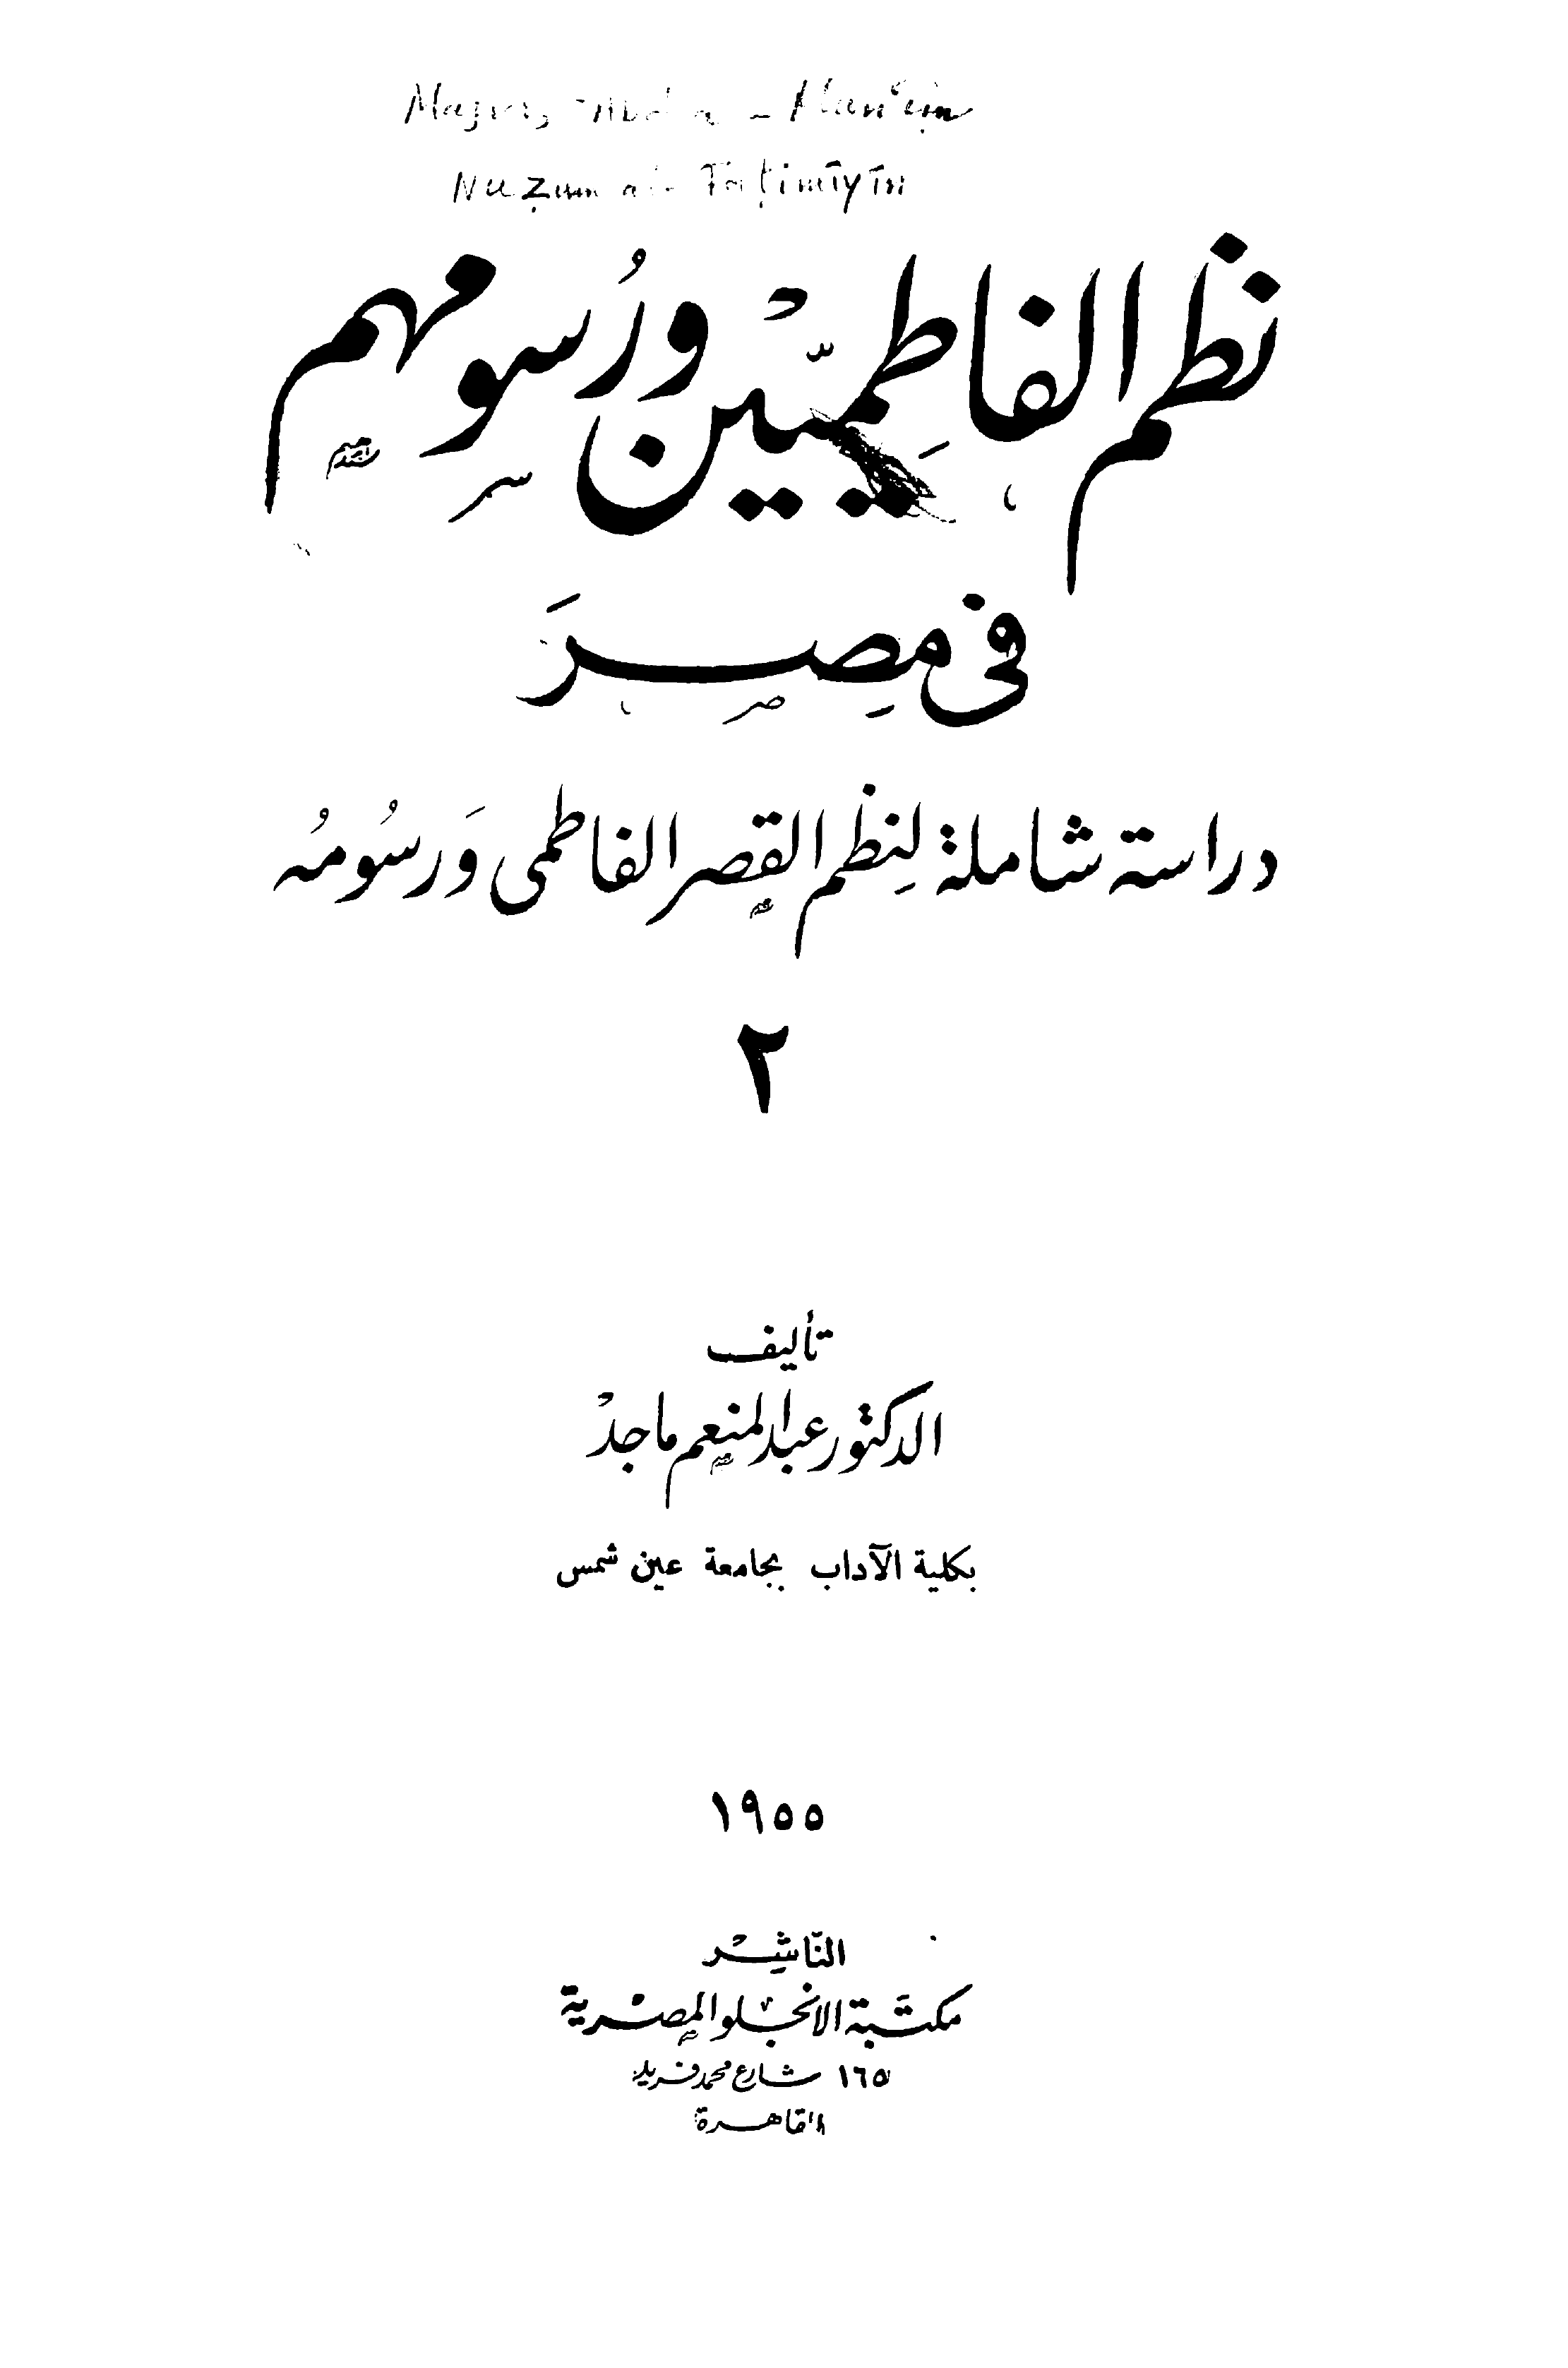 Nuzum al- Fāṭimīyīn
نظم الفاطِميّينْ ورُسومهم
فى مِصرَ
دراسة شاملة لِنظم القصر الفاطمى وَرسُومُه
٢
تأليف
الدكتور عبد المنعم ماجدْ
بكلية الآداب بجامعة عين شمس
١٩٥٥
النّاشِرْ
مكتَبة الانجلو المصْرية
١٦٥ شارع محمد فريد
القاهرة